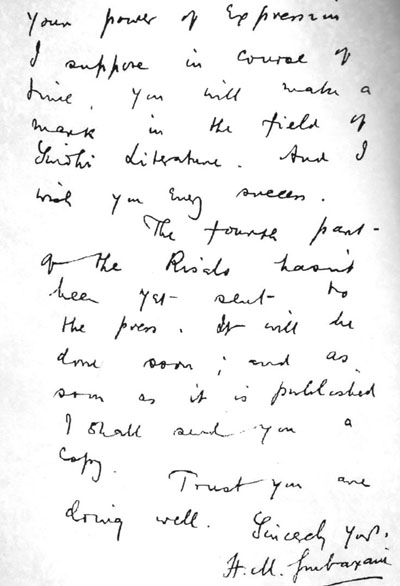 Your power of Expression
I suppose in course of
time, you will make a
mark in the field of
Sindhi Literature. And I
wish you every success.
The fourth part
of the Risalo hasn't
been yet sent to
the press. It will be
done soon; and as
soon as it is published
I shall send you a
copy. Trust you are
doing well. Sincerely yours.
H.M. Gurbaxani